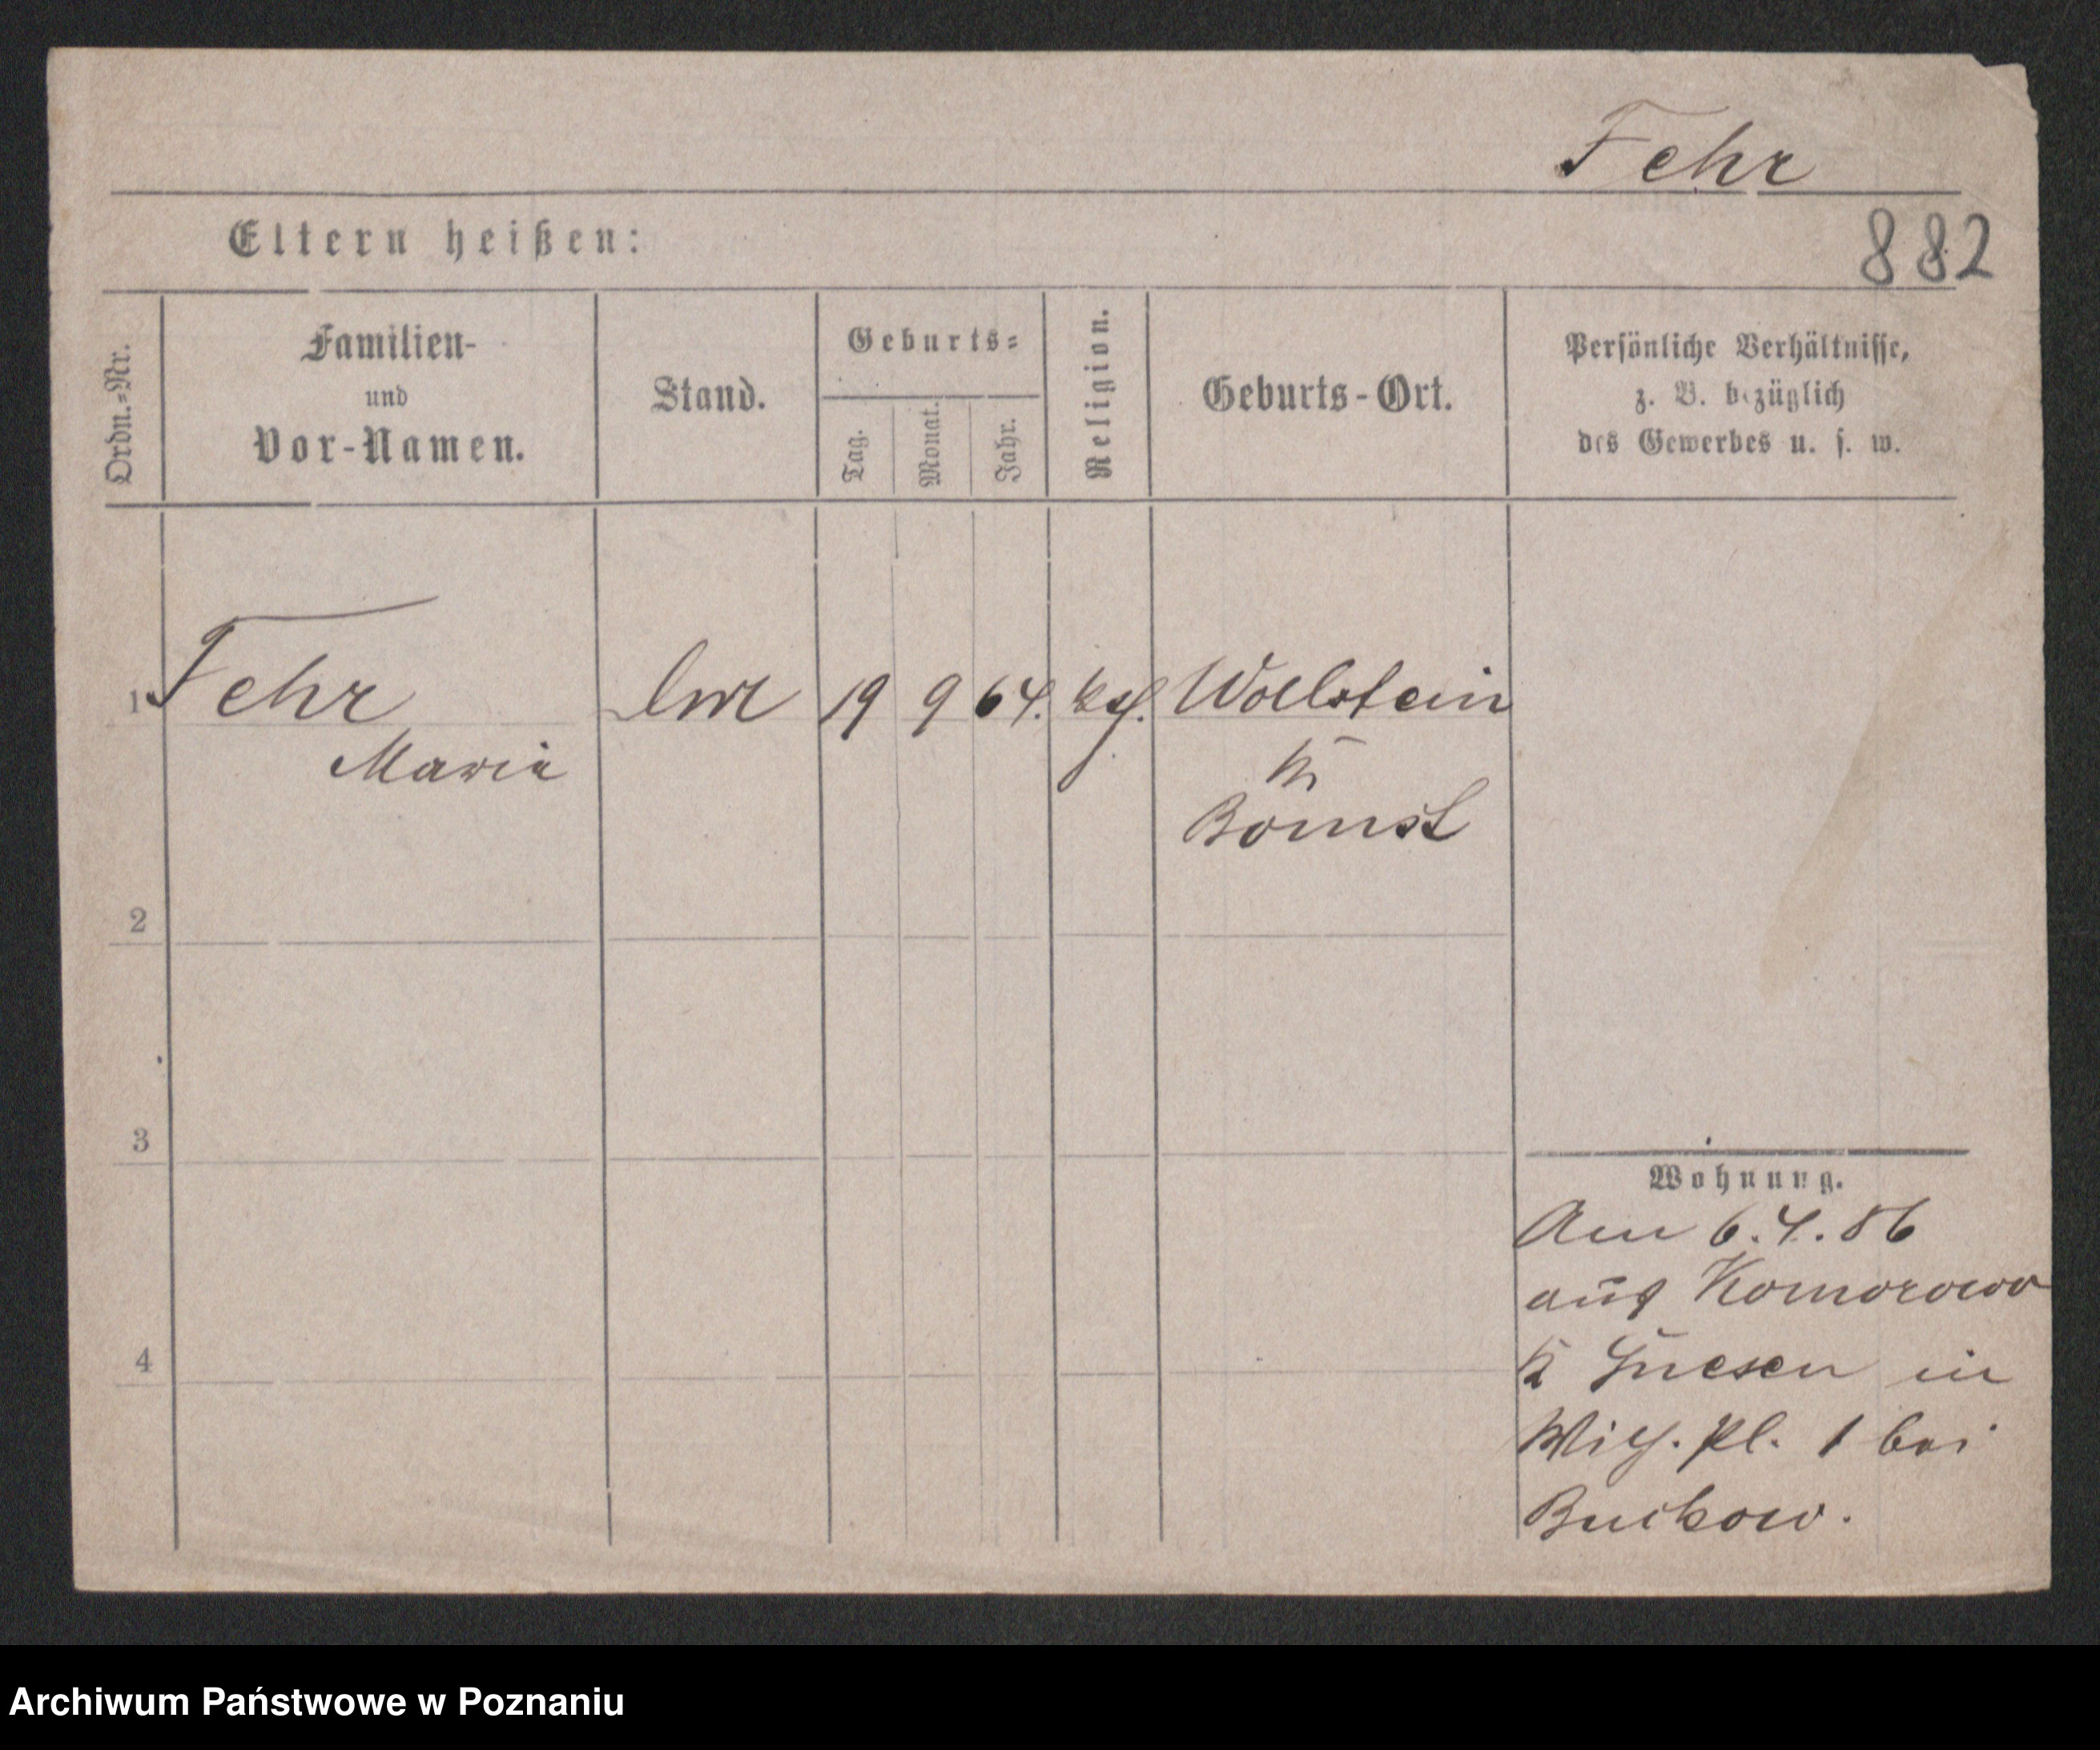 Fehr
Eltern heißen:
882
Ordn.=Nr.
Familien-
und
Vor-Namen.
Stand.
Geburts=
Tag.
Monat.
Jahr.
Religion.
Geburts-Ort.
Persönliche Verhältnisse,
z. B. bezüglich
des Gewerbes u. s. w.
1 Fehr 19 9 64. Wollstein
Maria
Kr
Bomst
2
3
4
Wohnung.
Am 6.4.86
aus Komorowo
Kr Gnesen in
Pl. 1 bei
Buckow.
Archiwum Państwowe w Poznaniu